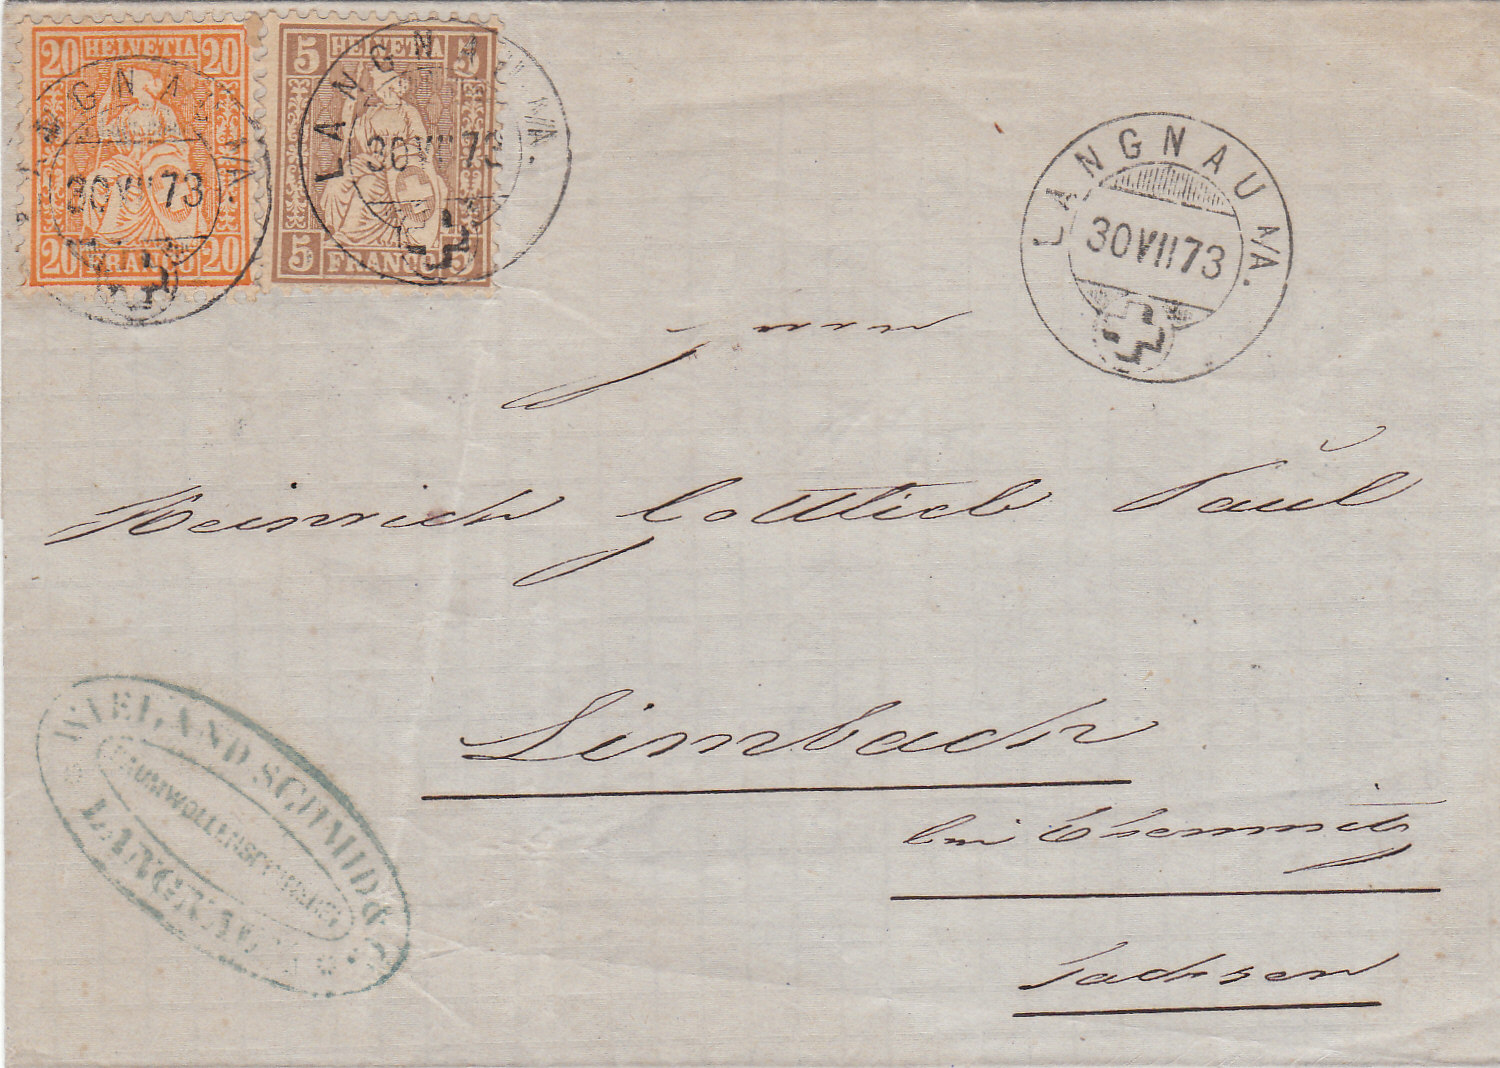 20 HELVETIA 20
20 FRANCO 20
5 HELVETIA 5
5 FRANCO 5
LANGNAU A/A.
30 VII 73
LANGNAU A/A.
30 VII 73
LANGNAU A/A.
30 VII 73
Herrn
Heinrich Gottlieb Paul
Limbach
bei Chemnitz
Sachsen
WIELAND SCHMID & Co.
LANGNAU